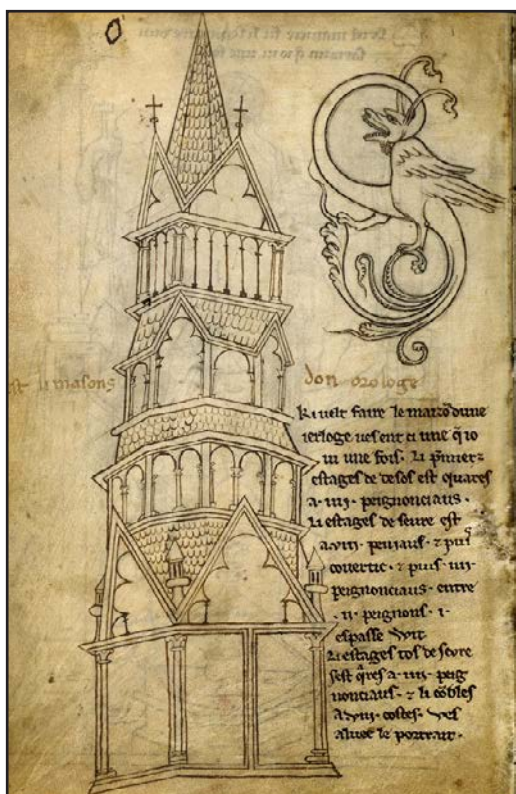 est li masons don orologe
Ki velt faire le maizō dune
ierloge ves ent ci une q̄ io
vi une fois. Li p̄miers
estages de desos est quares
a .iiii. peignonciaus.
Li estages de seure est
a .viii. peniaus. ⁊ puis
covertic. ⁊ puis .iiii.
peignonciaus. entre
.ii. peignons .i.
espasse wit
Li estages tos de seure
sest q̄res a .iiii. peig
nonciaus. ⁊ li cōbles
a .viii. costes. ves
aluec le portrait.